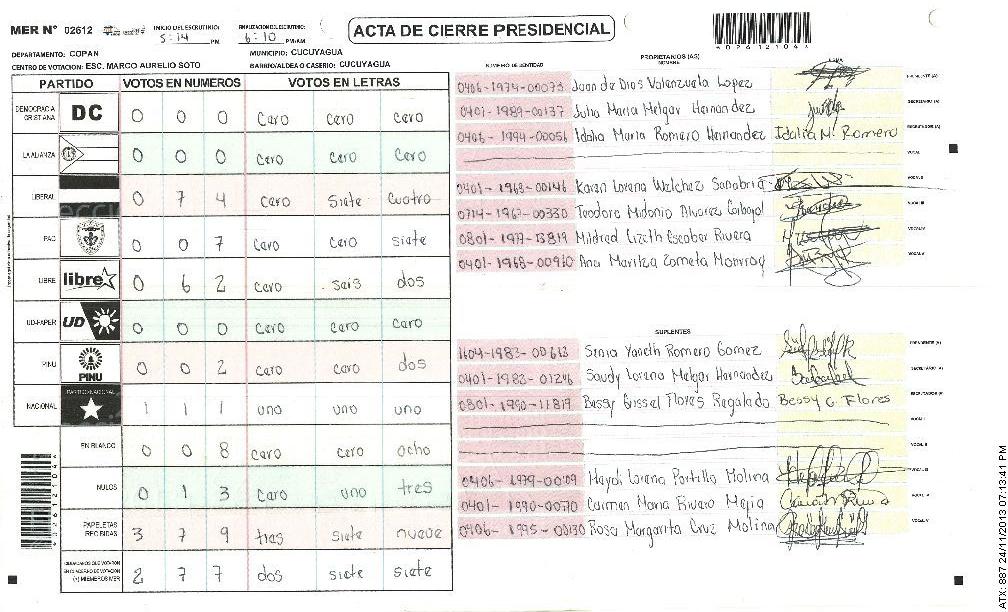 MER N° 02612
INICIO DEL ESCRUTINIO: 5:14 PM
FINALIZACION DEL ESCRUTINIO: 6:10 PM/AM
ACTA DE CIERRE PRESIDENCIAL
DEPARTAMENTO: COPAN
MUNICIPIO: CUCUYAGUA
CENTRO DE VOTACION: ESC. MARCO AURELIO SOTO
BARRIO/ALDEA O CASERIO: CUCUYAGUA
PARTIDO VOTOS EN NUMEROS VOTOS EN LETRAS
DEMOCRACIA CRISTIANA DC 0 0 0 cero cero cero
LA ALIANZA 0 0 0 cero cero cero
LIBERAL 0 7 4 cero siete cuatro
PAC 0 0 7 cero cero siete
LIBRE libre 0 6 2 cero seis dos
UD-FAPER UD 0 0 0 cero cero cero
PINU PINU 0 0 2 cero cero dos
NACIONAL PARTIDO NACIONAL 1 1 1 uno uno uno
EN BLANCO 0 0 8 cero cero ocho
NULOS 0 1 3 cero uno tres
PAPELETAS RECIBIDAS 3 7 9 tres siete nueve
CIUDADANOS QUE VOTARON EN CUADERNO DE VOTACION (+) MIEMBROS MER 2 7 7 dos siete siete
NUMERO DE IDENTIDAD PROPIETARIOS (AS) NOMBRE FIRMA
0406-1974-00073 Juan de Dios Valenzuela Lopez PRESIDENTE (A)
0401-1989-00137 Julia Maria Melgar Hernandez SECRETARIO (A)
0406-1994-00056 Idalia Maria Romero Hernandez Idalia M. Romero ESCRUTADOR (A)
VOCAL I
0401-1968-00146 Karen Lorena Welchez Sanabria VOCAL II
0714-1967-00330 Teodoro Midonio Alvarez Carbajal VOCAL III
0801-1971-13819 Mildred Lizeth Escobar Rivera VOCAL IV
0401-1968-00910 Ana Maritza Zometa Monroy VOCAL V
SUPLENTES
1604-1983-00613 Senia Yaneth Romero Gomez PRESIDENTE (A)
0401-1982-01246 Saudy Lorena Melgar Hernandez SECRETARIO (A)
0801-1990-11819 Bessy Gissel Flores Regalado Bessy G. Flores ESCRUTADOR (A)
VOCAL I
VOCAL II
0406-1979-00109 Haydi Lorena Portillo Molina VOCAL III
0401-1990-00770 Carmen Maria Rivera Mejia VOCAL IV
0406-1995-00130 Rosa Margarita Cruz Molina VOCAL V
ATX: 887 24/11/2013 07:13:41 PM